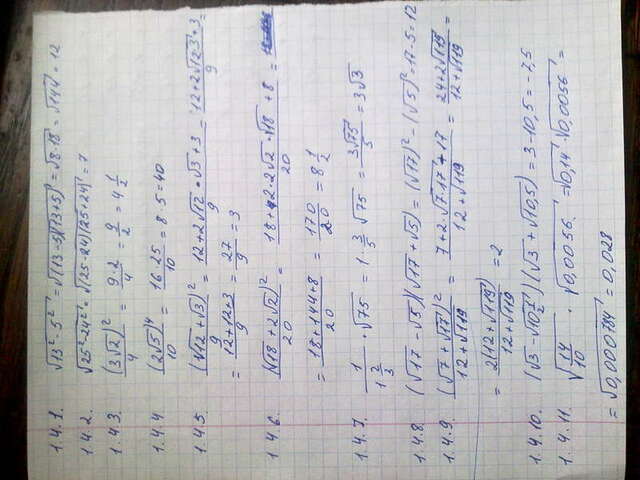 1.4.1. √13²-5² = √(13-5)(13+5) = √8·18 = √144 = 12
1.4.2. √25²-24² = √(25-24)(25+24) = 7
1.4.3. (3√2)²/4 = 9·2/4 = 9/2 = 4 1/2
1.4.4 (2√5)⁴/10 = 16·25/10 = 8·5=40
1.4.5 (√12+√3)²/9 = 12+2√12·√3+3/9 = 12+2√12·3+3/9 =
= 12+12+3/9 = 27/9 = 3
1.4.6. (√18+2√2)²/20 = 18+2·2√2·√18+8/20 =
= 18+144+8/20 = 170/20 = 8 1/2
1.4.7. 1/1 2/3 · √75 = 1·3/5 √75 = 3√75/5 = 3√3
1.4.8. (√17-√5)(√17+√5) = (√17)²-(√5)²=17-5=12
1.4.9. (√7+√17)²/12+√119 = 7+2·√7·17+17/12+√119 = 24+2√119/12+√119 =
= 2(12+√119)/12+√119 = 2
1.4.10. (√3-√10 1/2)(√3+√10,5) = 3-10,5=-7,5
1.4.11. √14/10 · √0,0056 = √0,14·√0,0056 =
= √0,000784 = 0,028